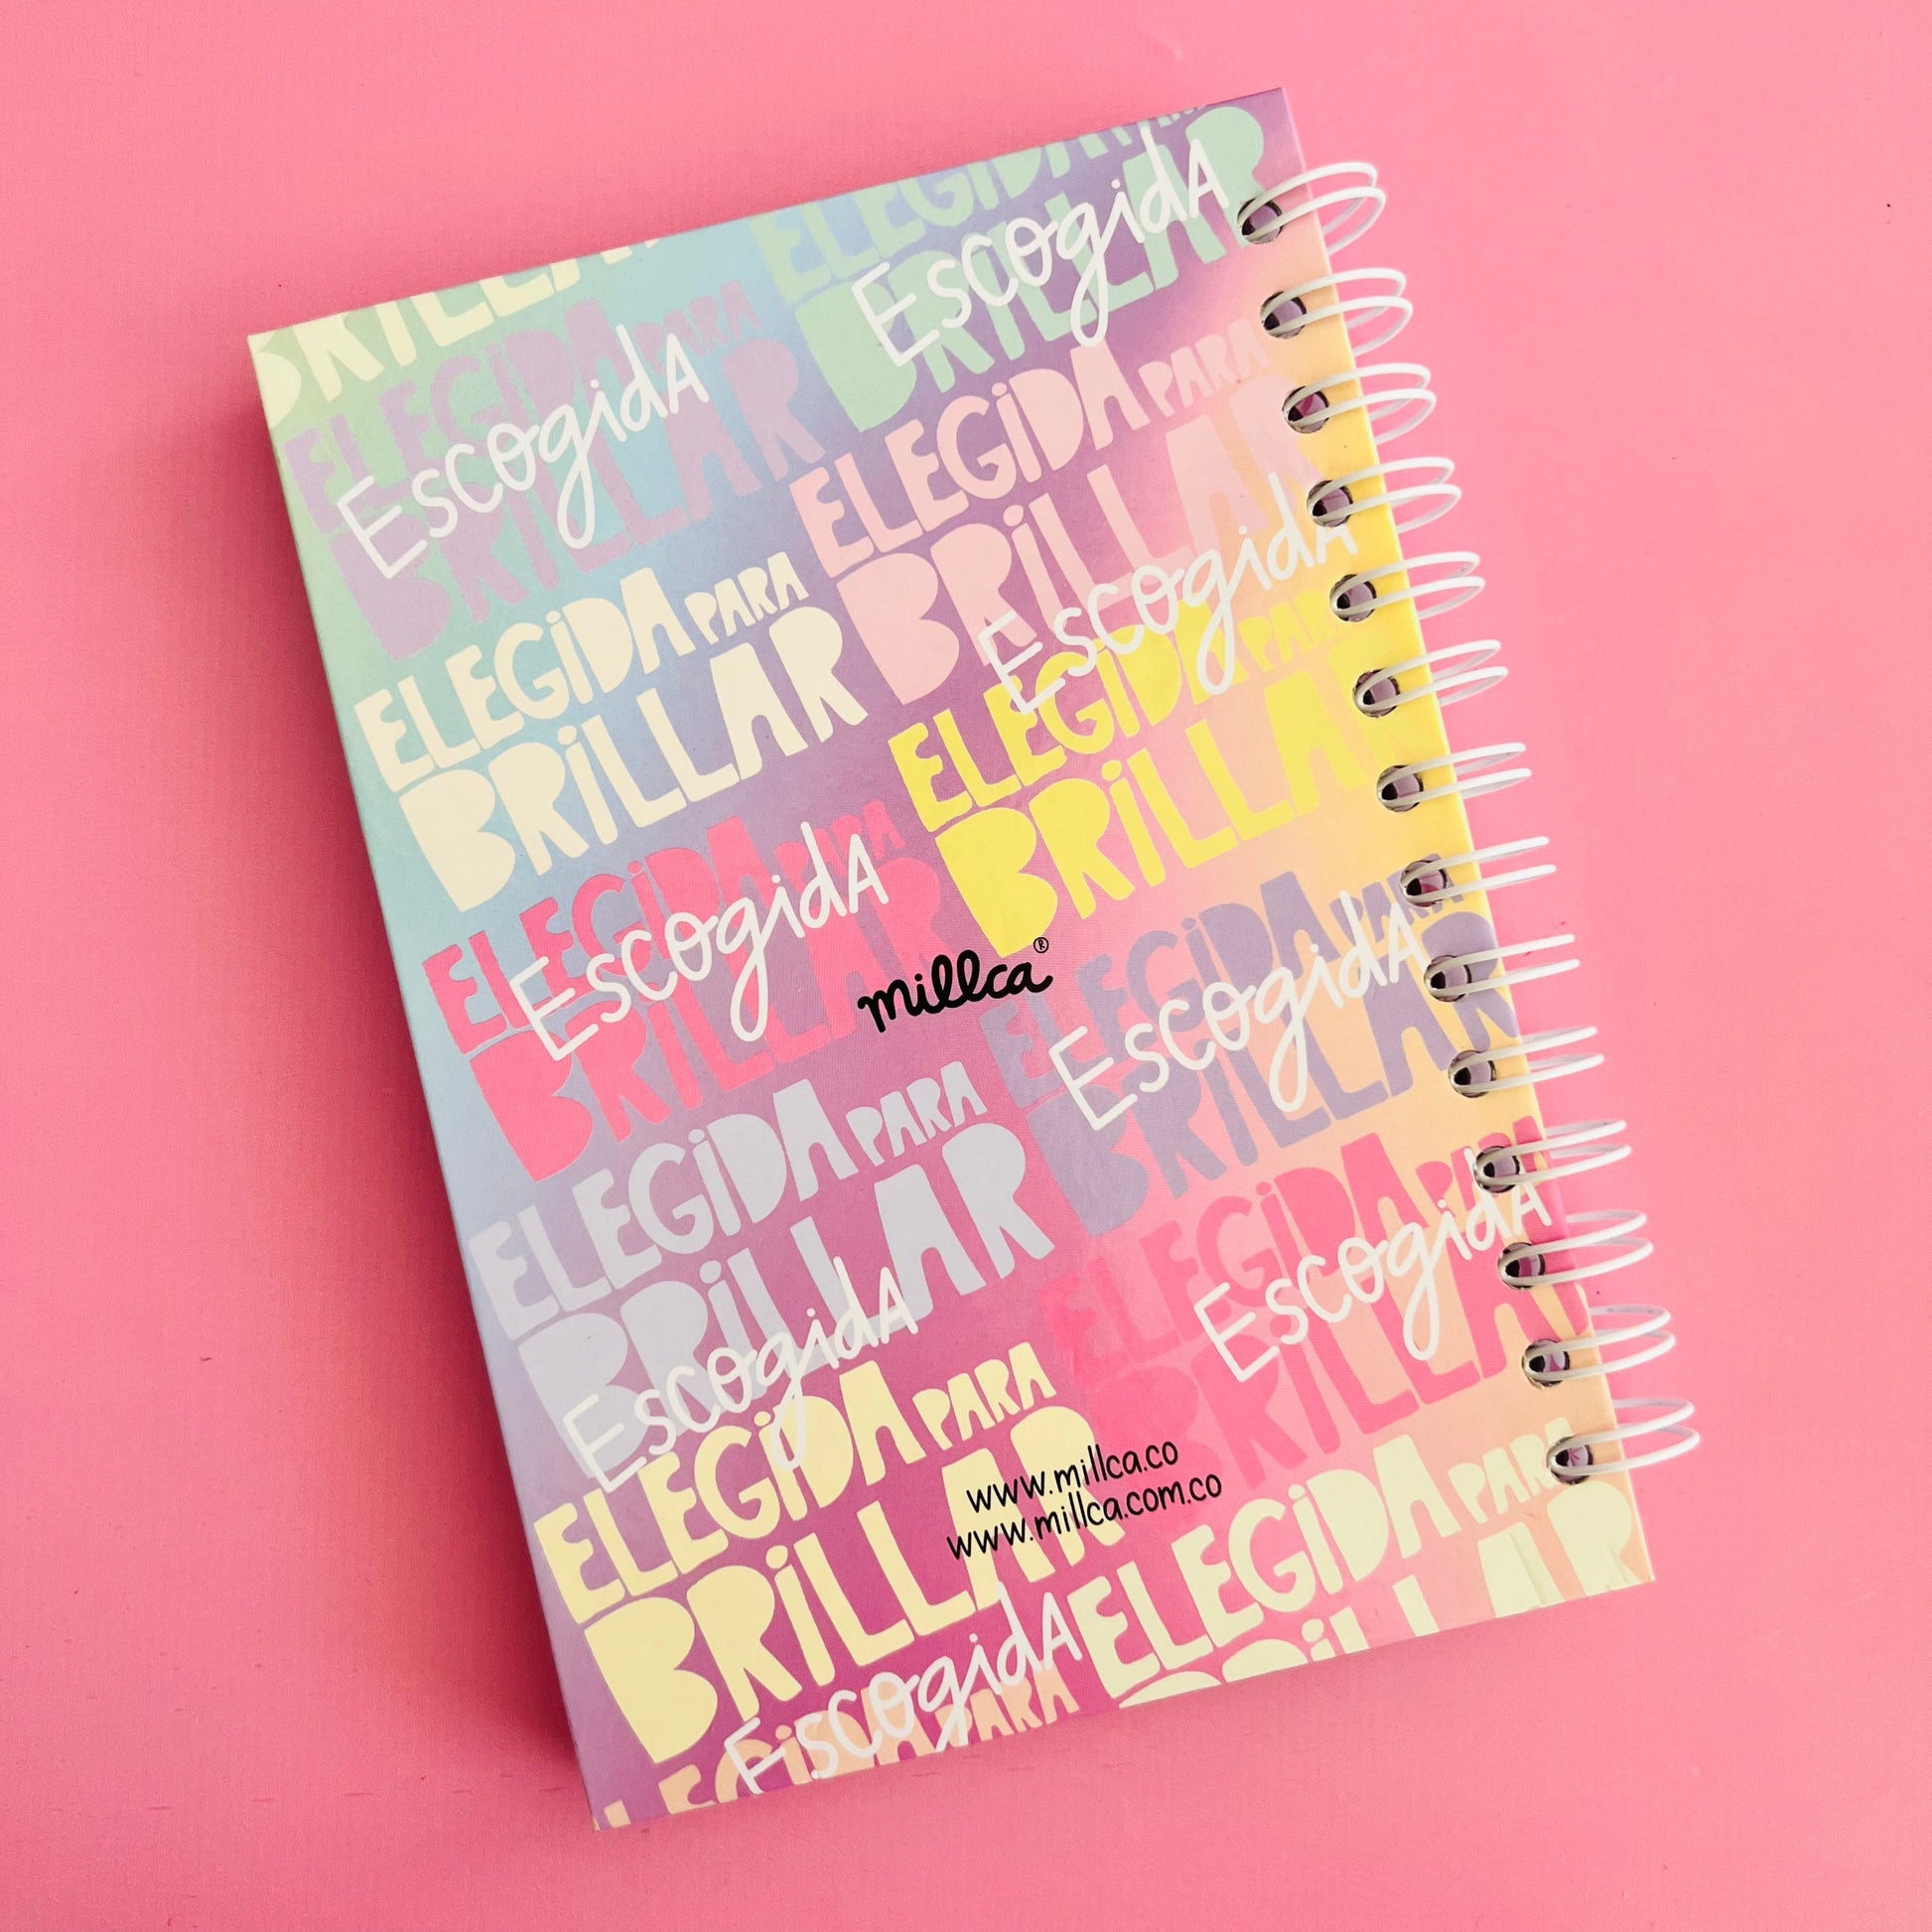 BRILLAR
ELEGIDA PARA
BRILLAR
EscogidA
ELEGIDA PARA
BRILLAR
EscogidA
ELEGIDA PARA
BRILLAR
ELEGIDA PARA
BRILLAR
EscogidA
ELEGIDA PARA
BRILLAR
ELEGIDA PARA
BRILLAR
EscogidA
millca®
ELEGIDA PARA
BRILLAR
EscogidA
ELEGIDA PARA
BRILLAR
EscogidA
ELEGIDA PARA
BRILLAR
EscogidA
ELEGIDA PARA
BRILLAR
www.millca.co
www.millca.com.co
ELEGIDA PARA
BRILLAR
EscogidA
ELEGIDA PARA